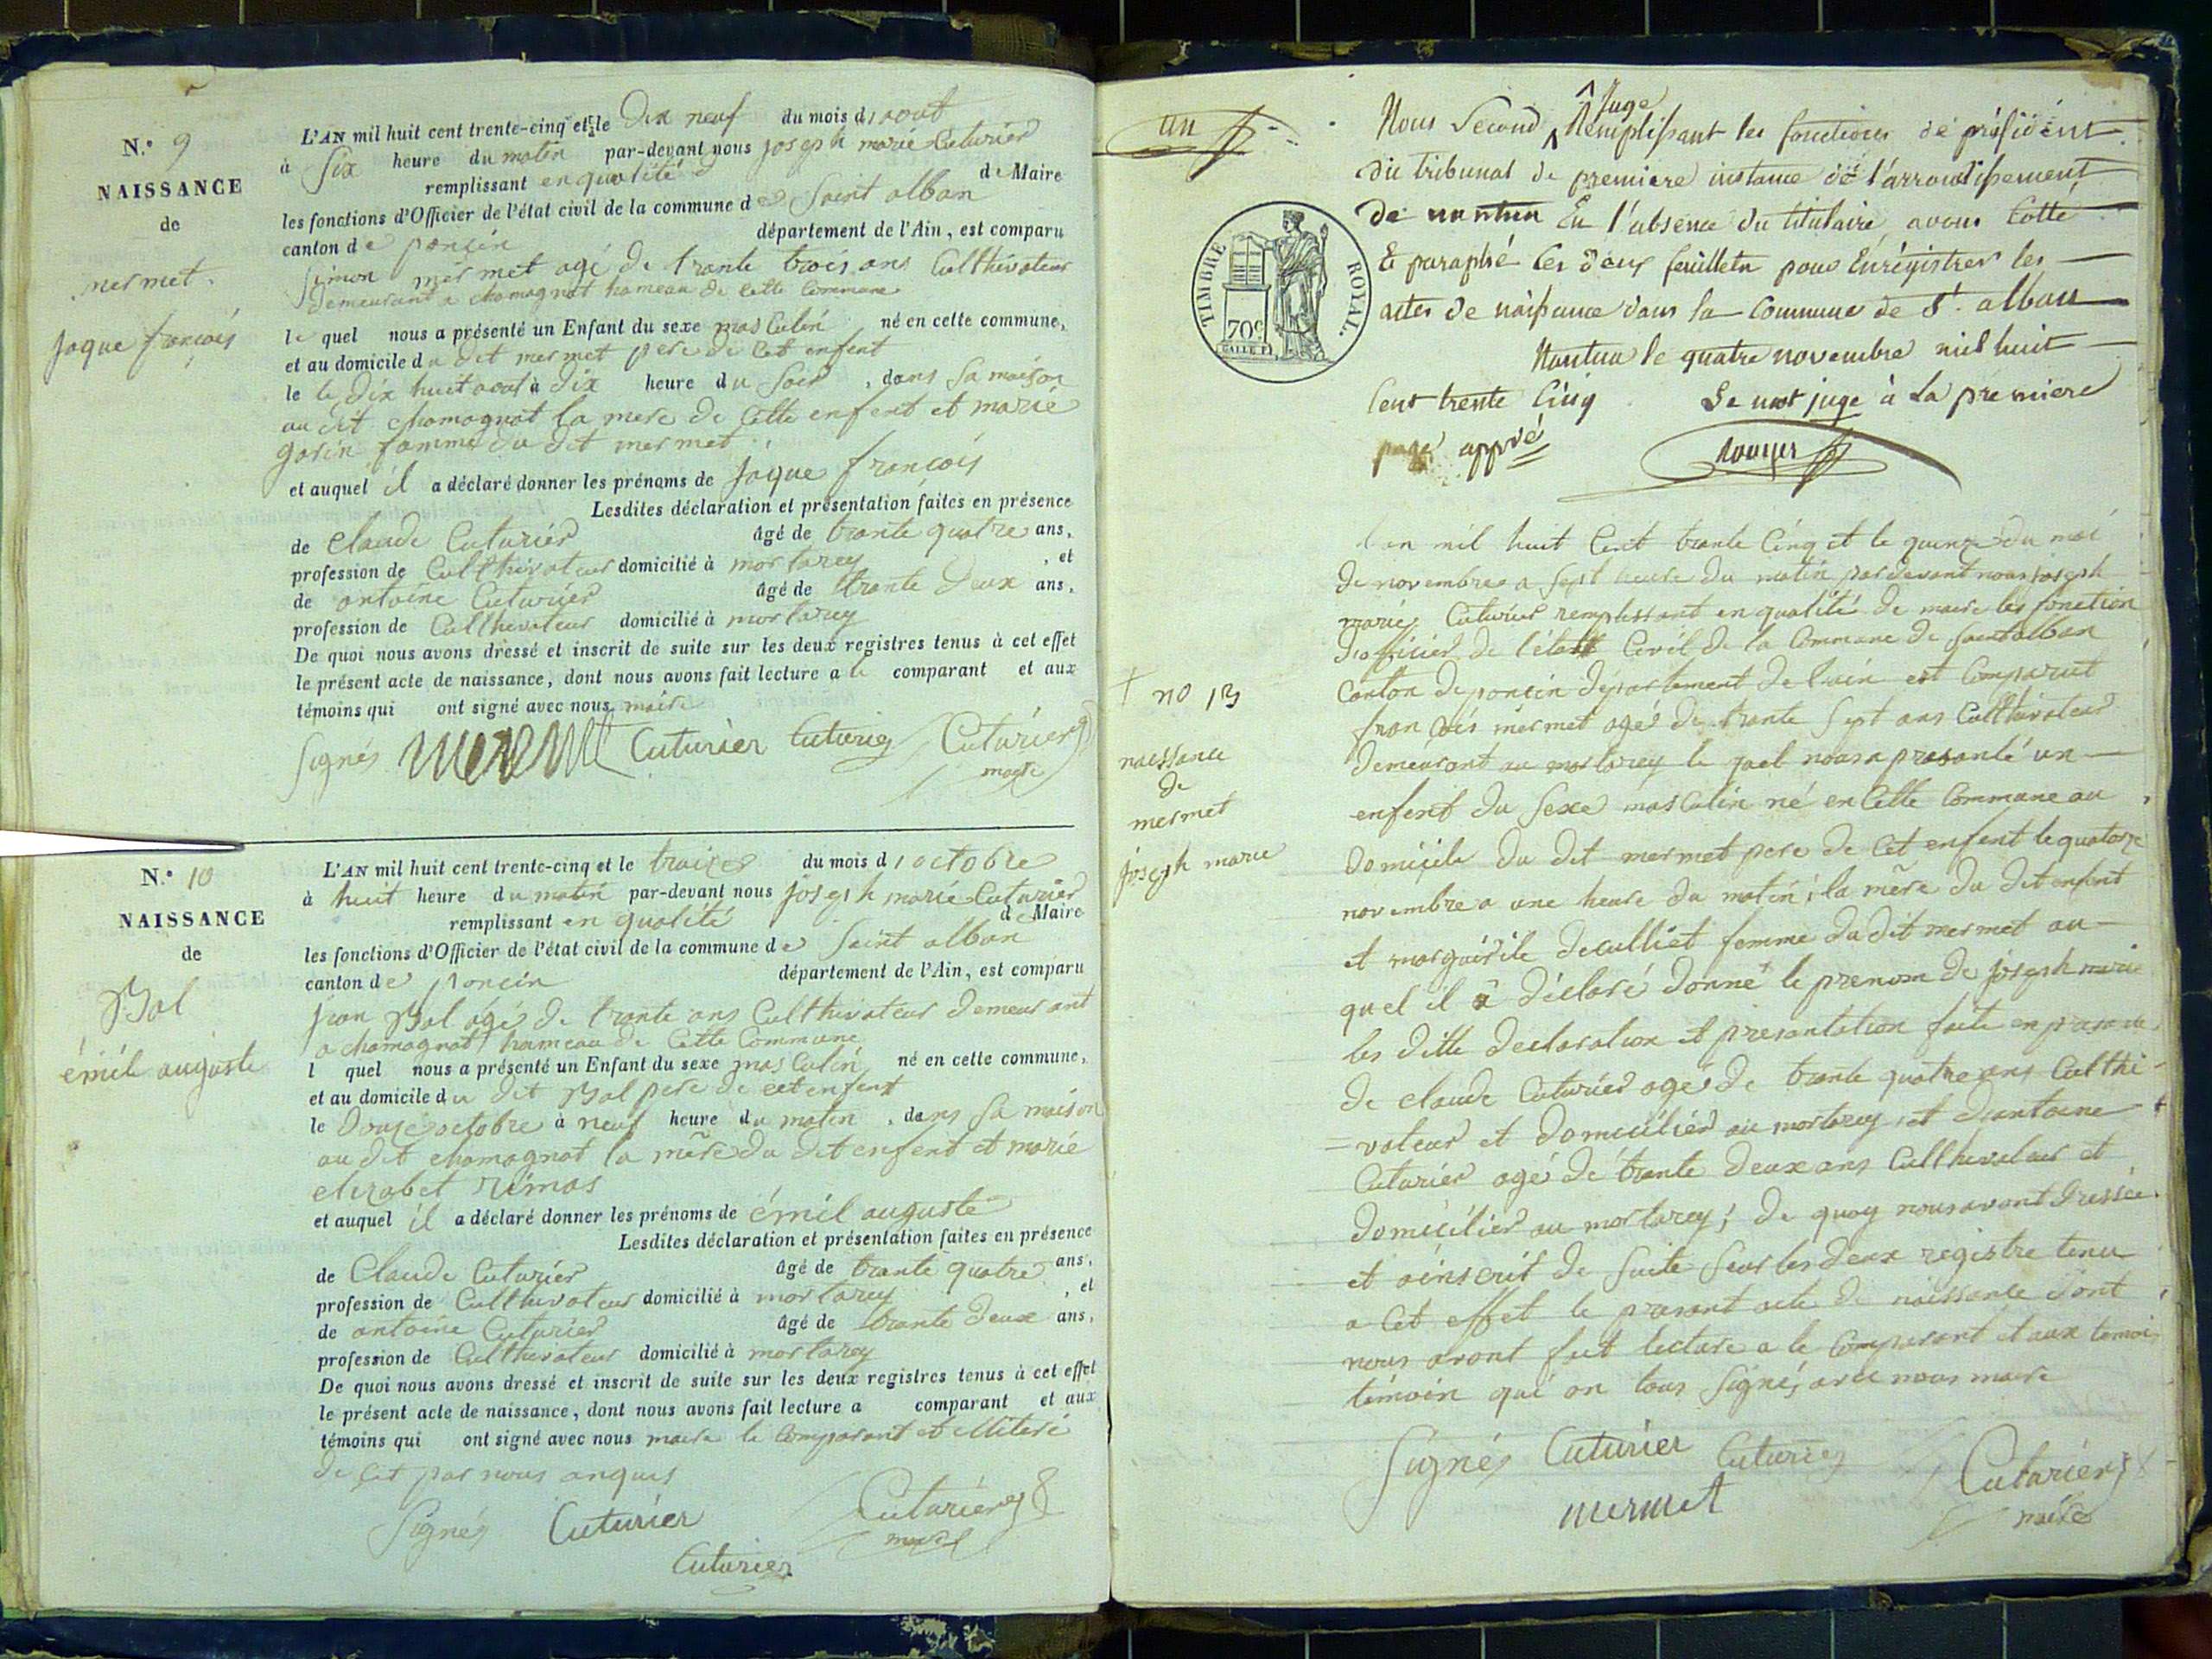 N.° 9
NAISSANCE
de
mermet.
jaque françois
L'AN mil huit cent trente-cinq et le Dix neuf du mois d'aout
à Six heure du matin par-devant nous joseph marie Cuturier
remplissant en qualité de Maire
les fonctions d'Officier de l'état civil de la commune de Saint alban
canton de poncin département de l'Ain, est comparu
Simon mermet agé de trante trois ans Culthivateur
demeurant a chamagnat hameau de cette Commune
le quel nous a présenté un Enfant du sexe masculin né en cette commune,
et au domicile du dit mermet pere de cet enfent
le le dix huit aout à dix heure du Soir, dans sa maison
au dit chamagnat la mere de cette enfent et marie
gorin famme du dit mermet
et auquel il a déclaré donner les prénoms de jaque françois
Lesdites déclaration et présentation faites en présence
de Claude Cuturier âgé de trante quatre ans,
profession de Culthivateur domicilié à mortarey, et
de antoine Cuturier âgé de trante deux ans,
profession de Culthivateur domicilié à mortarey
De quoi nous avons dressé et inscrit de suite sur les deux registres tenus à cet effet
le présent acte de naissance, dont nous avons fait lecture a le comparant et aux
témoins qui ont signé avec nous maire
Signés mermet Cuturier Cuturier Cuturier
maire
N.° 10
NAISSANCE
de
Bal
émil auguste
L'AN mil huit cent trente-cinq et le traize du mois d'octobre
à huit heure du matin par-devant nous joseph marie Cuturier
remplissant en qualité de Maire
les fonctions d'Officier de l'état civil de la commune de Saint alban
canton de poncin département de l'Ain, est comparu
jean Bal agé de trante ans Culthivateur demeurant
a chamagnat hameau de Cette Commune
l quel nous a présenté un Enfant du sexe masculin né en cette commune,
et au domicile du dit Bal pere de cet enfent
le Douze octobre à neuf heure du matin, dans sa maison
au dit chamagnat la mère du dit enfent et marie
elizabet
et auquel il a déclaré donner les prénoms de émil auguste
Lesdites déclaration et présentation faites en présence
de Claude Cuturier âgé de trante quatre ans,
profession de Culthivateur domicilié à mortarey, et
de antoine Cuturier âgé de trante deux ans,
profession de Culthivateur domicilié à mortarey
De quoi nous avons dressé et inscrit de suite sur les deux registres tenus à cet effet
le présent acte de naissance, dont nous avons fait lecture a comparant et aux
témoins qui ont signé avec nous maire le Comparant et illiteré
de cet par nous anquis
Signés Cuturier Cuturier
maire
Cuturier
un
Nous Second Juge Remplissant les fonctions de président
du tribunal de premiere instance de l'arrondissement
de nantua En l'absence du titulaire avons Cotté
Et paraphé les deux feuillets pour Enrégistrer les
actes de naissance dans la Commune de St. alban
Nantua le quatre novembre mil huit
Cent trente Cinq Le mot juge à la premiere
page appvé
TIMBRE ROYAL.
70c
l'an mil huit Cent trante Cinq et le quinze du moi
de novembre a Sept heure du matin pardevant nous joseph
marie Cuturier remplissant en qualité de maire les fonction
d'officier de l'état Civil de la Commune de Saint alban
Canton de poncin département de lain est Comparut
françois mermet agé de trante Sept ans Culthivateur
demeurant au mortarey le quel nous a presanté un
enfent du Sexe masculin né en Cette Commune au
domicile du dit mermet pere de Cet enfent le quatorze
novembre a une heure du matin; la mère du dit enfent
et marguirite deculliet femme du dit mermet au
quel il a déclaré donné le prenom de joseph marie
les ditte declaration et presantation faite en prasance
de claude Cuturier agé de trante quatre ans Culthi-
=vateur et domicilier au mortarey, et d'antoine
Cuturier agé de trante deux ans Culthivateur et
domicilier au mortarey; de quoy nous avont dressée
et ainscrit de Suite Sur les deux registre tenu
a Cet effet le prasant acte de naissance dont
nous avont fait lecture a le Comparant et aux temoi
témoin qui on tous Signé, avec nous maire
† no 13
naissance
de
mermet
joseph marie
Signés Cuturier Cuturier Cuturier
mermet maire